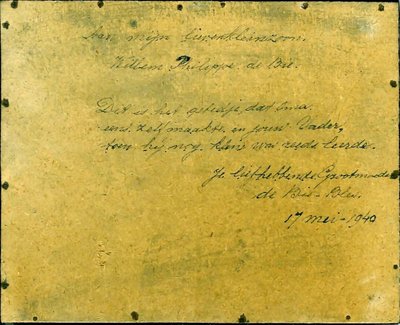 Aan mijn lieven kleinzoon.
Willem Philippe de Bie.
Dit is het gebedje, dat Oma
ons zelf maakte en jouw Vader,
toen hij nog klein was reeds leerde.
Je liefhebbende Grootmoeder
de Bie-
17 mei - 1940